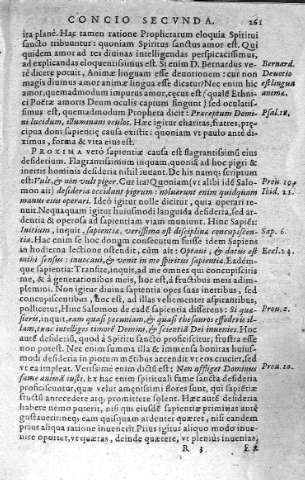 CONCIO SECVNDA. 261
ita planè. Hac tamen ratione Prophetarum eloquia Spiritui
sancto tribuuntur: quoniam Spiritus sanctus amor est. Qui
quidem amor ad res diuinas intelligendas perspicacissimus,
ad explicandas eloquentissimus est. Si enim D. Bernardus ve- Bernard.
rè dicere potuit, Animæ linguam esse deuotionem: cur non Deuotio
magis diuinus amor animæ lingua esse dicatur? Nec enim hic est lingua
amor, quemadmodum impurus amor, cæcus est animæ.
ci Poëtæ amoris Deum oculis captum fingunt) sed oculatis-
simus est, quemadmodum Propheta dicit: Præceptum Domi- Psal. 18.
ni lucidum, illuminans oculos. Hæc igitur charitas, fratres, præ-
cipua donis sapientiæ causa existit: quoniam vt paulo ante di-
ximus, forma & vita eius est.
PROXIMA verò sapientiæ causa est flagrantissimū eius
desiderium. Flagrantissimum inquam, quoniā ad hoc pigri &
inertis hominis desideria nihil iuuant. De his namq; scriptum
est: Vult, & non vult piger. Cur ita? Quoniam (vt alibi idē Salo- Prou.
mon ait) desideria occidunt pigrum: noluerunt enim quidquam Ibid. 21.
manus eius operari. Ideò igitur nolle dicitur, quia operari re-
nuit. Nequaquam igitur huiusmodi languida desideria, sed ar-
dentia & operosa ad sapientiam viam muniunt. Hinc Sapiēs:
Initium, inquit, sapientiæ, verissima est disciplinæ concupiscen- Sap. 6.
tia. Hac enim se hoc donum consecutum fuisse idem Sapiens
in hodierna lectione ostendit, cùm ait: Optaui, & datus est Eccl. 24.
mihi sensus: inuocaui, & venit in me spiritus sapientiæ. Eadem
quoque sapientia: Transite, inquit, ad me omnes qui concupiscitis
me, & à generationibus meis, hoc est, à fructibus meis adim-
plemini. Non igitur diuina sapientia opes suas inertibus, sed
concupiscentibus, hoc est, ad illas vehementer aspirantibus,
pollicetur. Hinc Salomon de eadē sapientia disserens: Si quæ- Prou. 2.
sieris, inquit, eam quasi pecuniam, & quasi thesauros effoderis il-
lam, tunc intelliges timorē Domini, & scientiā Dei inuenies. Hoc
autē desiderij, quod à Spiritu sancto proficiscitur, frustra esse
non potest. Nec enim summa illa & immensa bonitas huius-
modi desideria in piorum mētibus accendit vt eos cruciet, sed
vt ea impleat. Verissimè enim dictū est: Non affliget Dominus Prou. 10.
fame animā iusti.
fructū antecedere atq; promittere solent. Hæc autē desideria
habere nemo poterit, nisi qui eiusdē sapientiæ primitias autē
gustauerit: neq; eam quisquam ardenter quæret, nisi eandem
prius aliqua ratione inuenerit. Prius igitur aliquo modo inue-
nire oportet, vt quæras, deinde quærere, vt plenius inuenias,
R 3